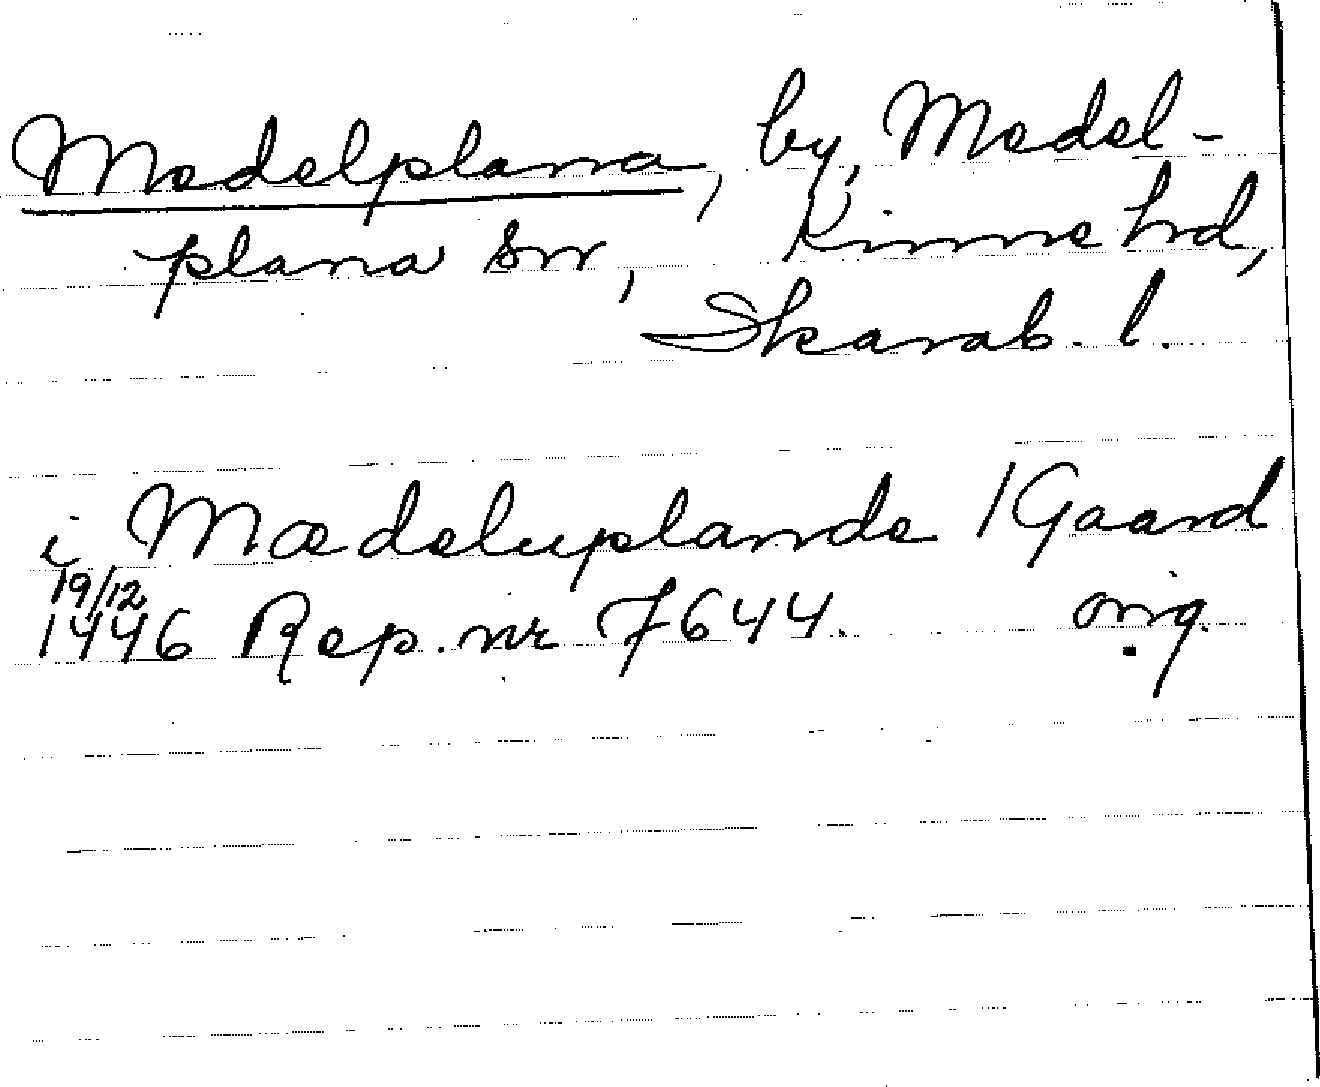 Medelplana, by, Medel-
plana sn, Kinne hrd,
Skarab. l.
i Mædeluplande 1 Gaard
19/12
1446 Rep. nr 7644. orig.